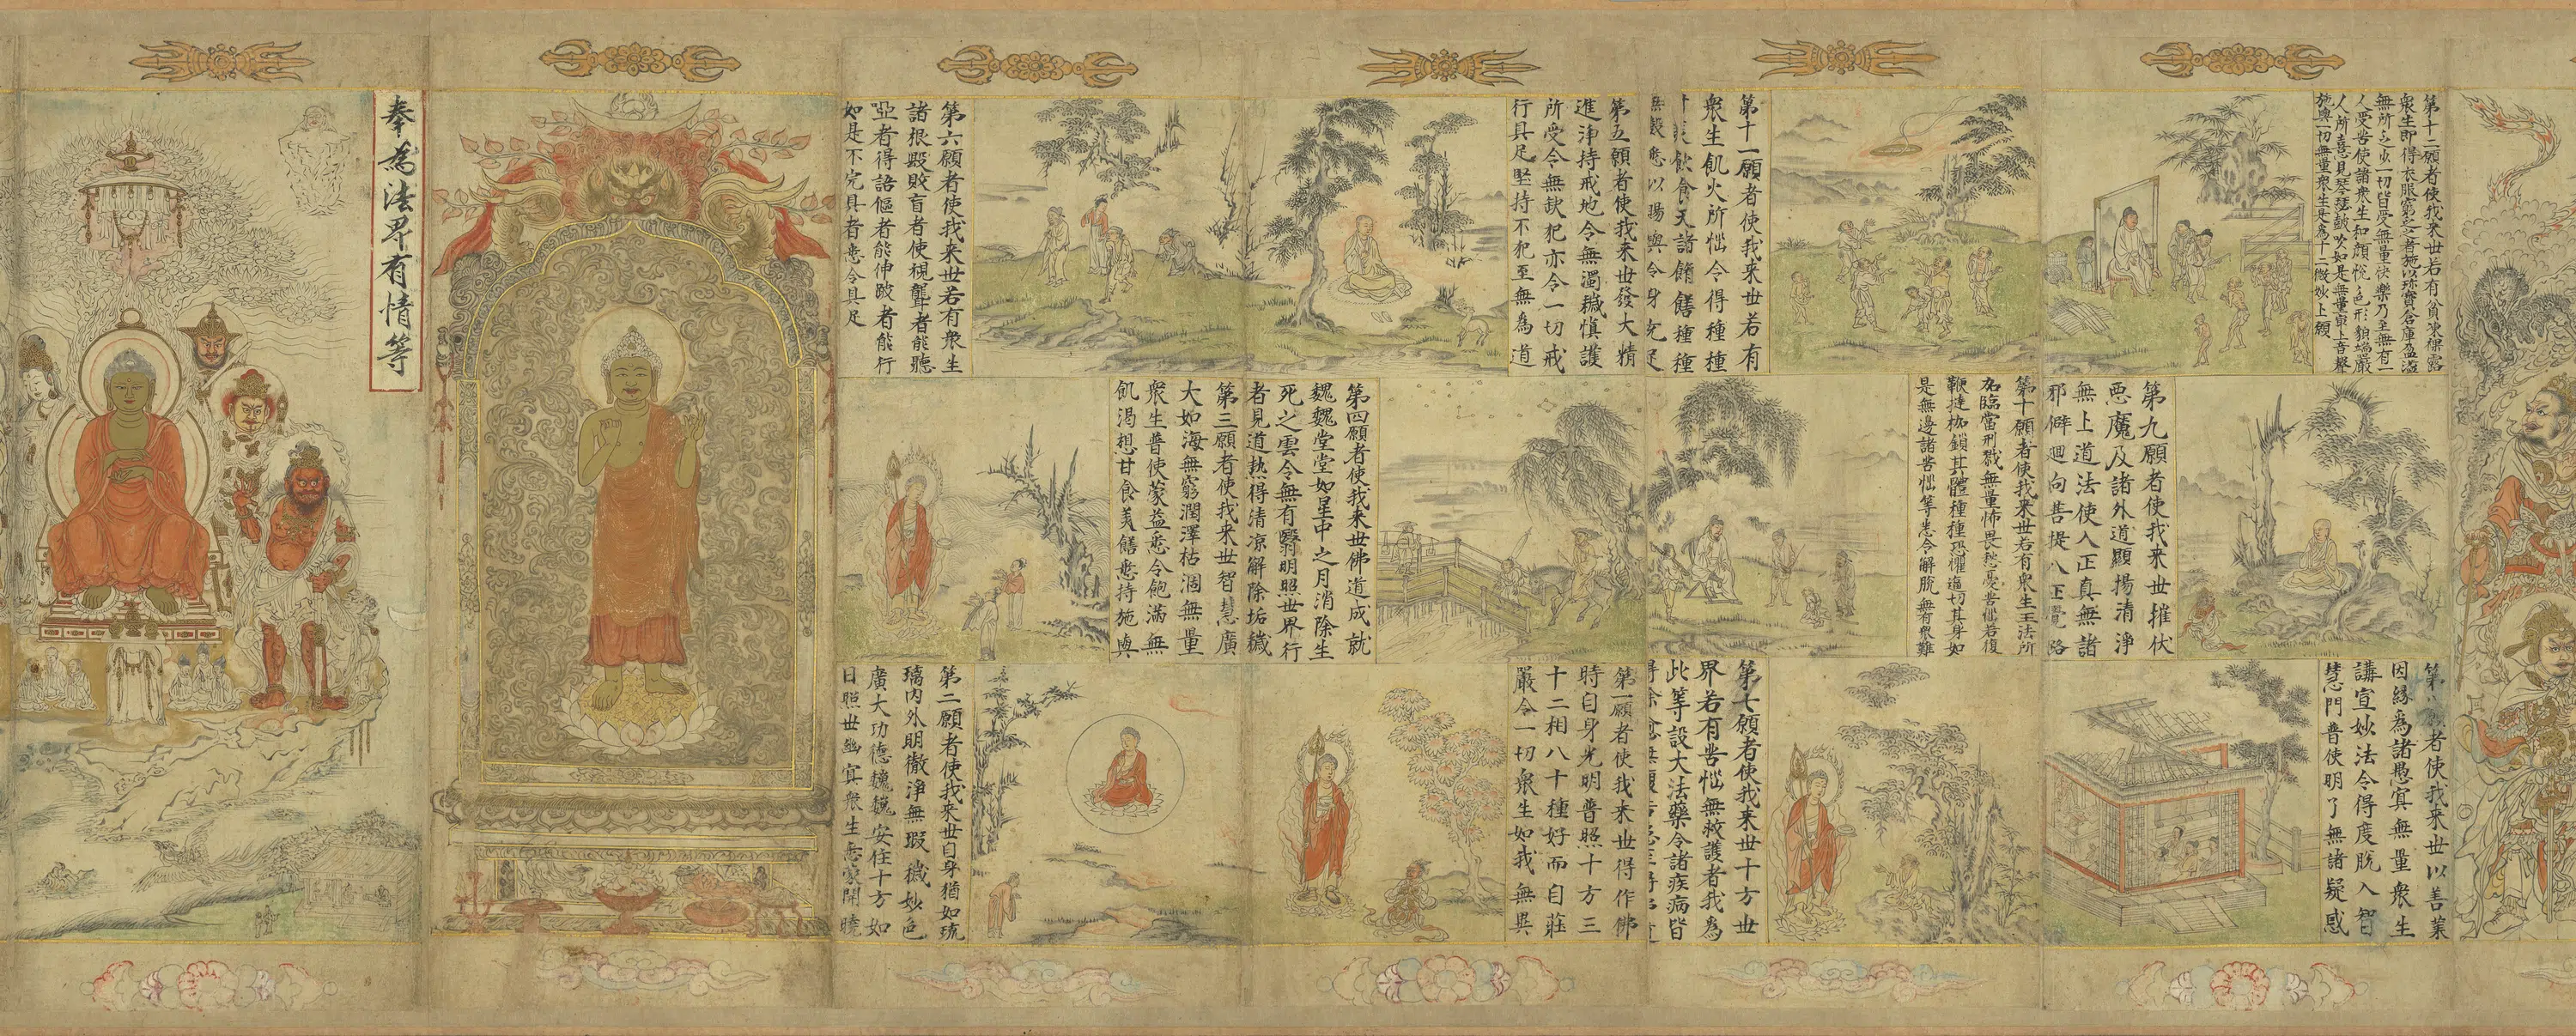 第十二願者使我来世若有貧凍裸露
衆生即得衣服窮乏之者施以珎寶倉庫盈溢
無所乏少一切皆受無量快樂乃至無有一
人受苦使諸衆生和顔悅色形貌端嚴
人所喜見琴瑟皷吹如是無量寂上音聲
施與一切無量衆生是為十二微妙上願
第九願者使我来世摧伏
悪魔及諸外道顯揚清淨
無上道法使入正真無諸
邪僻廻向菩提八正覺路
第八願者使我来世以善業
因緣為諸愚冥無量衆生
講宣妙法令得度脱入智
慧門普使明了無諸疑惑
第十一願者使我来世若有
衆生飢火所惱令得種種
飲食天諸餚饍種種
悉以賜與令身充足
第十願者使我来世若有衆生王法所
加臨當刑戮無量怖畏愁憂苦惱若復
鞭撻枷鎖其體種種恐懼逼切其身如
是無邊諸苦惱等悉令解脫無有衆難
第七願者使我来世十方世
界若有苦惱無救護者我為
此等設大法藥令諸疾病皆
第五願者使我来世發大精
進淨持戒地令無濁穢慎護
所受令無欽犯亦令一切戒
行具足堅持不犯至無為道
第四願者使我来世佛道成就
魏魏堂堂如星中之月消除生
死之雲令無有翳明照世界行
者見道熱得清凉解除垢穢
第三願者使我来世智慧廣
大如海無窮潤澤枯涸無量
衆生普使蒙益悉令飽滿無
飢渴想甘食美饍悉持施與
第一願者使我来世得作佛
時自身光明普照十方三
十二相八十種好而自莊
嚴令一切衆生如我無異
第六願者使我来世若有衆生
諸根毀敗盲者使視聾者能聽
啞者得語傴者能伸跛者能行
如是不完具者悉令具足
第二願者使我来世自身猶如琉
璃内外明徹淨無瑕穢妙色
廣大功德巍巍安住十方如
日照世幽冥衆生悉蒙開曉
奉為法界有情等